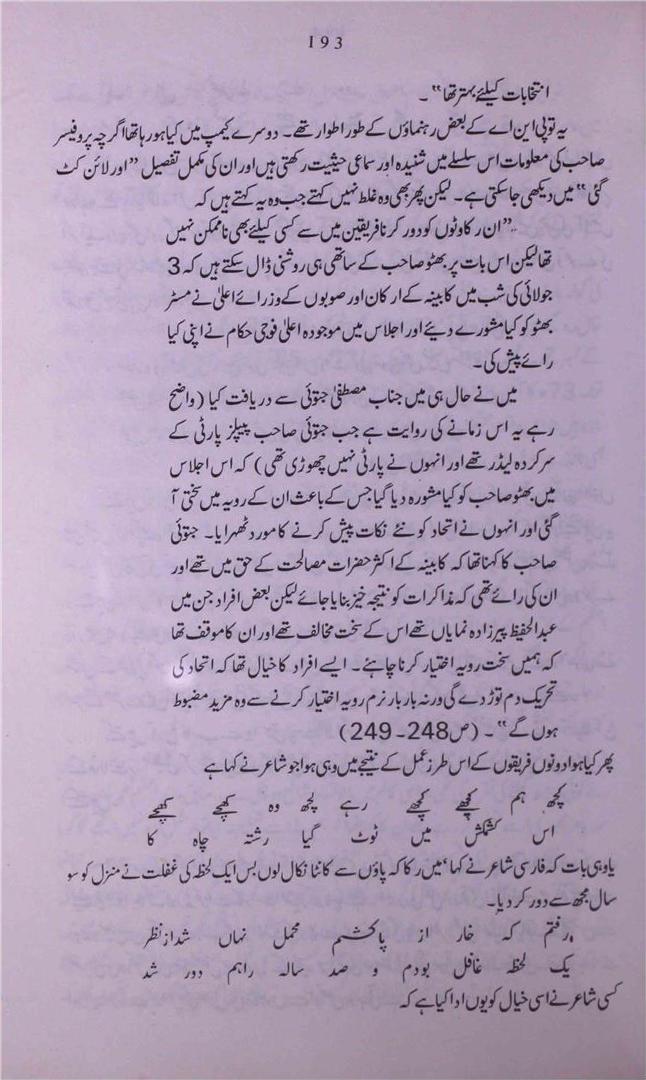 193
انتخابات کیلئے بہتر تھا“۔
یہ تو پی این اے کے بعض رہنماؤں کے طور اطوار تھے۔ دوسرے کیمپ میں کیا ہو رہا تھا اگرچہ پروفیسر
صاحب کی معلومات اس سلسلے میں شنیدہ اور سماعی حیثیت رکھتی ہیں اور ان کی مکمل تفصیل ”اور لائن کٹ
گئی“ میں دیکھی جا سکتی ہے۔ لیکن پھر بھی وہ غلط نہیں کہتے جب وہ یہ کہتے ہیں کہ
”ان رکاوٹوں کو دور کرنا فریقین میں سے کسی کیلئے بھی ناممکن نہیں
تھا لیکن اس بات پر بھٹو صاحب کے ساتھی ہی روشنی ڈال سکتے ہیں کہ 3
جولائی کی شب میں کابینہ کے ارکان اور صوبوں کے وزرائے اعلیٰ نے مسٹر
بھٹو کو کیا مشورے دیئے اور اجلاس میں موجودہ اعلیٰ فوجی حکام نے اپنی کیا
رائے پیش کی۔
میں نے حال ہی میں جناب مصطفیٰ جتوئی سے دریافت کیا (واضح
رہے یہ اس زمانے کی روایت ہے جب جتوئی صاحب پیپلز پارٹی کے
سرکردہ لیڈر تھے اور انہوں نے پارٹی نہیں چھوڑی تھی) کہ اس اجلاس
میں بھٹو صاحب کو کیا مشورہ دیا گیا جس کے باعث ان کے رویہ میں سختی آ
گئی اور انہوں نے اتحاد کو نئے نکات پیش کرنے کا مورد ٹھہرایا۔ جتوئی
صاحب کا کہنا تھا کہ کابینہ کے اکثر حضرات مصالحت کے حق میں تھے اور
ان کی رائے تھی کہ مذاکرات کو نتیجہ خیز بنایا جائے لیکن بعض افراد جن میں
عبدالحفیظ پیرزادہ نمایاں تھے اس کے سخت مخالف تھے اور ان کا موقف تھا
کہ ہمیں سخت رویہ اختیار کرنا چاہئے۔ ایسے افراد کا خیال تھا کہ اتحاد کی
تحریک دم توڑ دے گی ورنہ بار بار نرم رویہ اختیار کرنے سے وہ مزید مضبوط
ہوں گے“۔ (ص 248۔ 249)
پھر کیا ہوا دونوں فریقوں کے اس طرز عمل کے نتیجے میں وہی ہوا جو شاعر نے کہا ہے
کچھ ہم کھچے کھچے رہے کچھ وہ کھچے کھچے
اس کشمکش میں ٹوٹ گیا رشتہ چاہ کا
یا وہی بات کہ فارسی شاعر نے کہا ’میں رکا کہ پاؤں سے کانٹا نکال لوں بس ایک لحظہ کی غفلت نے منزل کو سو
سال مجھ سے دور کر دیا۔
رفتم کہ خار از پا کشم محمل نہاں شد از نظر
یک لحظہ غافل بودم و صد سالہ راہم دور شد
کسی شاعر نے اسی خیال کو یوں ادا کیا ہے کہ